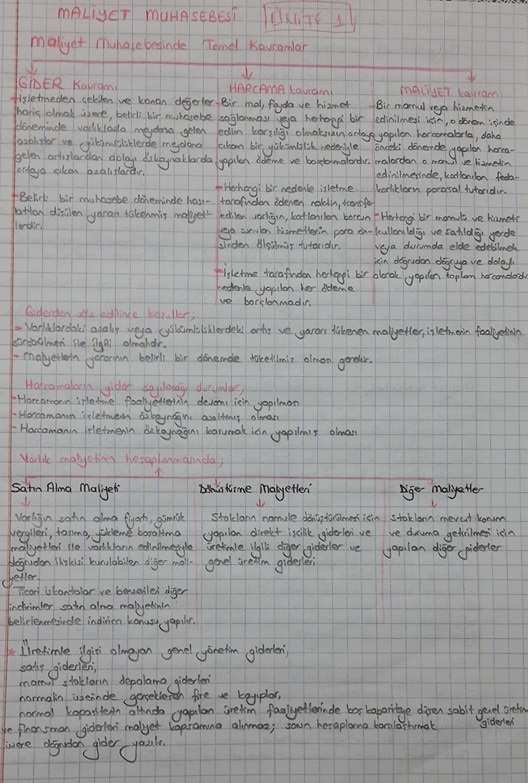 MALİYET MUHASEBESİ ÜNİTE 1
Maliyet Muhasebesinde Temel Kavramlar
GİDER Kavramı
-İşletmeden çekilen ve konan değerler
hariç olmak üzere, belirli bir muhasebe
döneminde varlıklarda meydana gelen
azalışlar ve yükümlülüklerde meydana
gelen artışlardan dolayı özkaynaklarda
ortaya çıkan azalışlardır.
-Belirli bir muhasebe döneminde hası-
lattan düşülen yararı tükenmiş maliyet-
lerdir.
HARCAMA kavramı
-Bir mal, fayda ve hizmet
sağlanması veya herhangi bir
edim karşılığı olmaksızın ortaya
çıkan bir yükümlülük nedeniyle
yapılan ödeme ve borçlanmalardır.
-Herhangi bir nedenle işletme
tarafından ödenen nakdin, transfer
edilen varlığın, katlanılan borcun
veya sunulan hizmetlerin para cin-
sinden ölçülmüş tutarıdır.
-İşletme tarafından herhangi bir
nedenle yapılan her ödeme
ve borçlanmadır.
MALİYET kavramı
-Bir mamul veya hizmetin
edinilmesi için, o dönem içinde
yapılan harcamalarla, daha
önceki dönemde yapılan harca-
malardan o mamul ve hizmetin
edinilmesinde, katlanılan feda-
karlıkların parasal tutarıdır.
-Herhangi bir mamulü ve hizmeti
kullanıldığı ve satıldığı yerde
veya durumda elde edebilmek
için doğrudan doğruya ve dolaylı
olarak yapılan toplam harcamalardır.
Giderden söz edilince koşullar;
-Varlıklardaki azalış veya yükümlülüklerdeki artış ve yararı tükenen maliyetler, işletmenin faaliyetinin
sürdürülmesi ile ilgili olmalıdır.
- Maliyetlerin yararının belirli bir dönemde tüketilmiş olması gerekir.
Harcamaların gider sayılacağı durumlar;
-Harcamanın işletme faaliyetlerinin devamı için yapılması
-Harcamanın işletmenin özkaynağını azaltmış olması
- Harcamanın işletmenin özkaynağını korumak için yapılmış olması
Varlık maliyetinin hesaplanmasında;
Satın Alma Maliyeti
Varlığın satın alma fiyatı, gümrük
vergileri, taşıma, yükleme boşaltma
maliyetleri ile varlıkların edinilmesiyle
doğrudan ilişkisi kurulabilen diğer mali-
yetler.
Ticari iskontolar ve benzeri diğer
indirimler satın alma maliyetinin
belirlenmesinde indirim konusu yapılır.
Dönüştürme Maliyetleri
Stokların mamule dönüştürülmesi için
yapılan direkt işçilik giderleri ve
üretimle ilgili diğer giderler ve
genel üretim giderleri
Diğer Maliyetler
stokların mevcut konum
ve duruma getirilmesi için
yapılan diğer giderler
* Üretimle ilgisi olmayan genel yönetim giderleri,
satış giderleri,
mamul stokların depolama giderleri
normalin üzerinde gerçekleşen fire ve kayıplar,
normal kapasitenin altında yapılan üretim faaliyetlerinde boş kapasiteye düşen sabit genel üretim
giderleri
ve finansman giderleri maliyet kapsamına alınmaz;
üzere doğrudan gider yazılır.